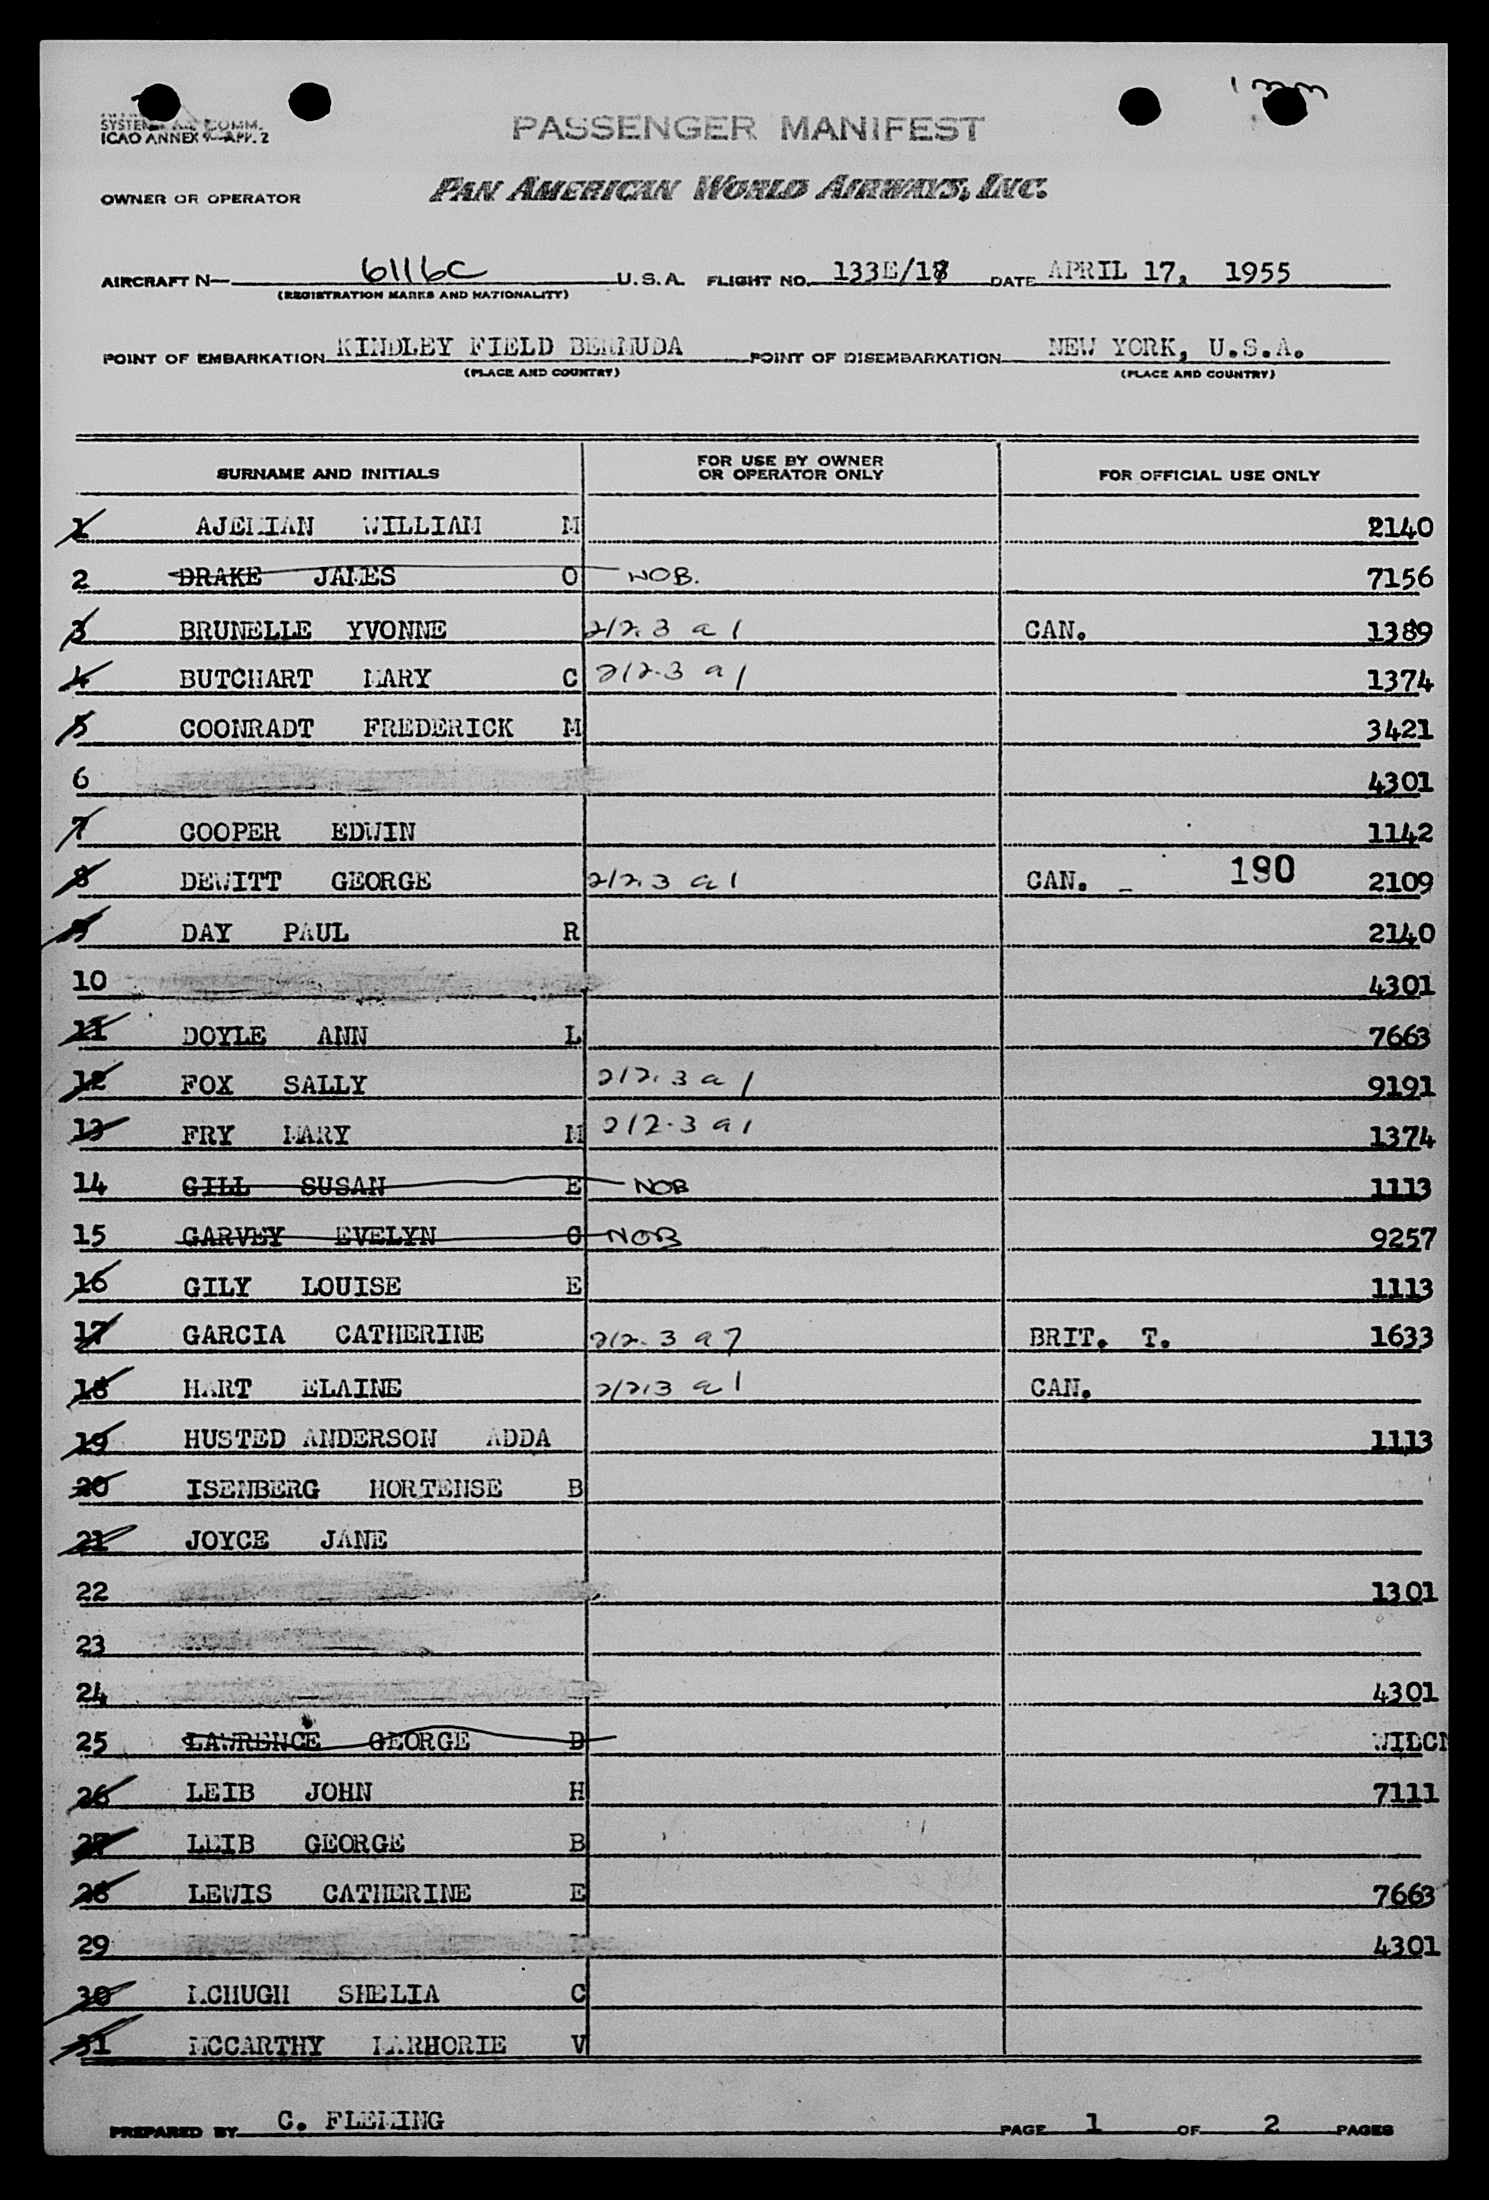 SYSTEM COMM.
ICAO ANNEX 9—APP. 2
PASSENGER MANIFEST
OWNER OR OPERATOR PAN AMERICAN WORLD AIRWAYS, INC.
AIRCRAFT N— 6116C U.S.A. FLIGHT NO. 133E/18 DATE APRIL 17, 1955
(REGISTRATION MARKS AND NATIONALITY)
POINT OF EMBARKATION KINDLEY FIELD BERMUDA POINT OF DISEMBARKATION NEW YORK, U.S.A.
(PLACE AND COUNTRY) (PLACE AND COUNTRY)
SURNAME AND INITIALS FOR USE BY OWNER OR OPERATOR ONLY FOR OFFICIAL USE ONLY
1 AJEMIAN WILLIAM M 2140
2 DRAKE JAMES O NOB. 7156
3 BRUNELLE YVONNE 212.3 a 1 CAN. 1389
4 BUTCHART MARY C 212.3 a 1 1374
5 COONRADT FREDERICK M 3421
6 4301
7 COOPER EDWIN 1142
8 DEWITT GEORGE 212.3 a 1 CAN. - 190 2109
9 DAY PAUL R 2140
10 4301
11 DOYLE ANN L 7663
12 FOX SALLY 212.3 a 1 9191
13 FRY MARY M 212.3 a 1 1374
14 GILL SUSAN E NOB 1113
15 GARVEY EVELYN G NOB 9257
16 GILY LOUISE E 1113
17 GARCIA CATHERINE 212.3 a 7 BRIT. T. 1633
18 HART ELAINE 212.3 a 1 CAN.
19 HUSTED ANDERSON ADDA 1113
20 ISENBERG HORTENSE B
21 JOYCE JANE
22 1301
23
24 4301
25 LAWRENCE GEORGE D
26 LEIB JOHN H 7111
27 LEIB GEORGE B
28 LEWIS CATHERINE E 7663
29 4301
30 MCHUGH SHELIA C
31 MCCARTHY MARHORIE V
PREPARED BY C. FLEMING PAGE 1 OF 2 PAGES